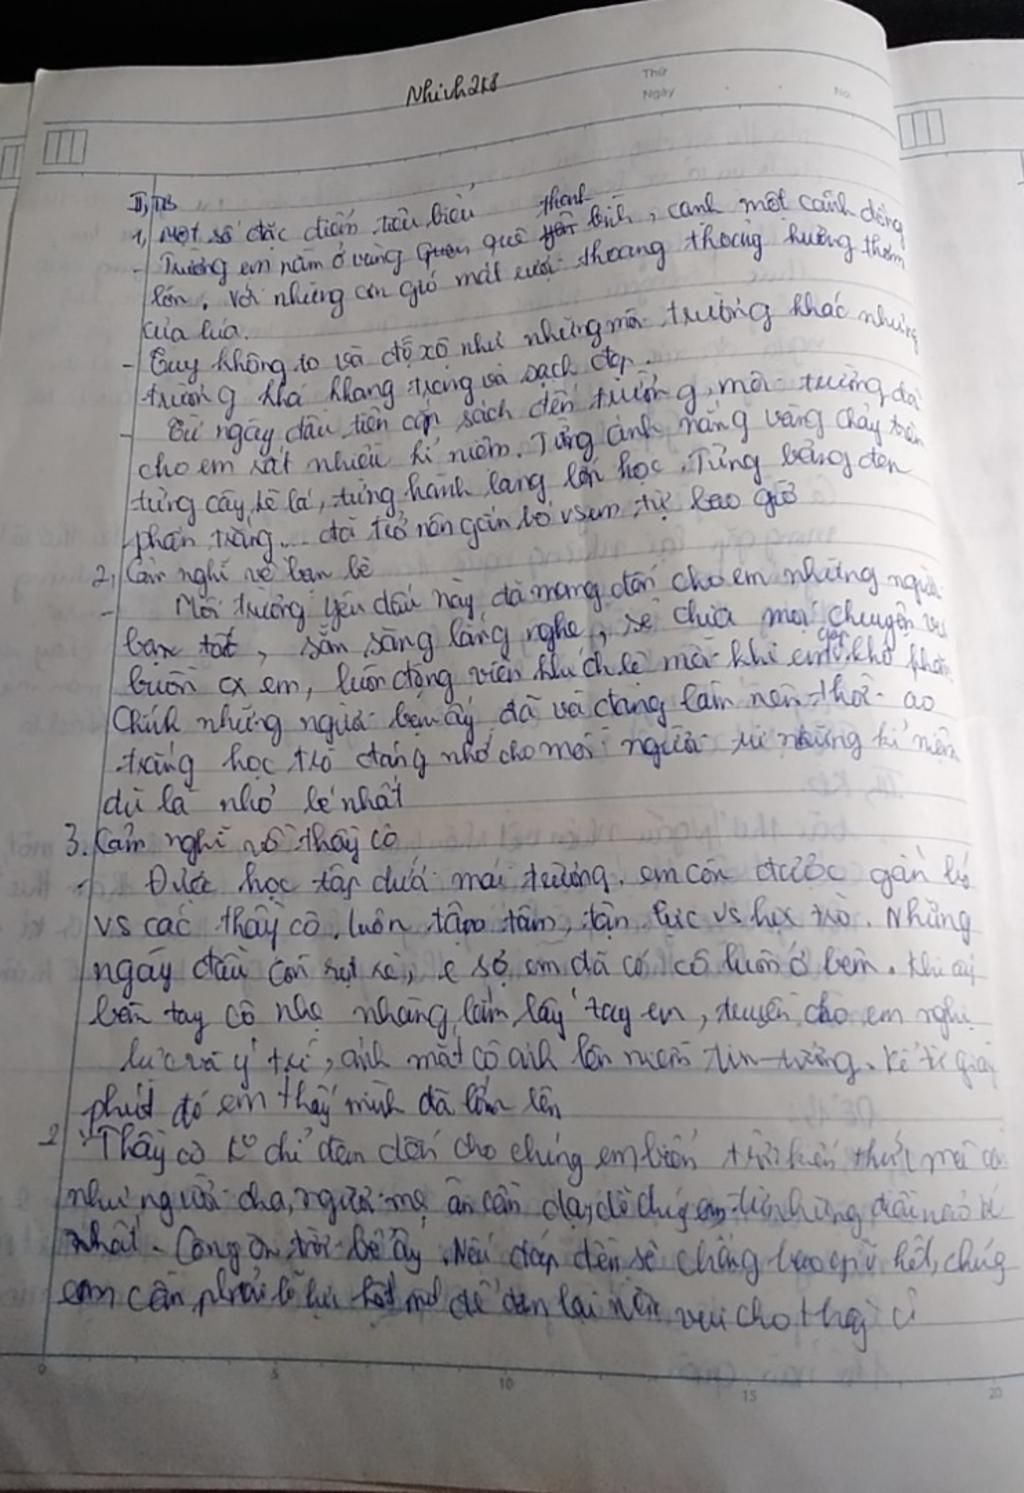 Nhinh268
Thứ
Ngày
No.
II, TB
1, Một số đặc điểm tiêu biểu
- Trường em nằm ở vùng quê thanh bình, cạnh một cánh đồng
lớn, với những cơn gió mát rượi thoang thoảng hương thơm
của lúa.
- Tuy không to và đồ xộ như những mái trường khác nhưng
trường khá khang trang và sạch đẹp.
- Từ ngày đầu tiên cặp sách đến trường, mái trường đã
cho em rất nhiều kỉ niệm. Từng ánh nắng vàng chảy trên
từng cây, kẽ lá, từng hành lang lớp học. Từng bảng đen
phấn trắng... đã trở nên gắn bó vs em tự bao giờ
2, Cảm nghĩ về bạn bè
- Mái trường yêu dấu này đã mang đến cho em những người
bạn tốt, sẵn sàng lắng nghe, sẻ chia mọi chuyện vui
buồn cx em, luôn động viên khích lệ mỗi khi em gặp khó khăn
Chính những người bạn ấy đã và đang làm nên thời áo
trắng học trò đáng nhớ cho mỗi người từ những kỉ niệm
dù là nhỏ bé nhất
3. Cảm nghĩ về thầy cô
- Được học tập dưới mái trường, em còn được gắn bó
vs các thầy cô, luôn tâm, tận lực vs học trò. Những
ngày đầu còn rụt rè, e sợ em đã có cô luôn ở bên. Khi ấy
bàn tay cô nhẹ nhàng nắm lấy tay em, truyền cho em nghị
lực và ý trí, ánh mắt cô ánh lên niềm tin tưởng. Kể từ giây
phút đó em thấy mình đã lớn lên
Thầy cô ko chỉ dẫn cho chúng em biển trời kiến thức mà còn
như người cha, người mẹ ân cần dạy dỗ chúng em từ những điều nhỏ bé
nhất. Công ơn trời bể ấy. Nếu đáp đền sẽ chẳng bao giờ hết, chúng
em cần phải để đem lại niềm vui cho thầy cô
0 5 10 15 20